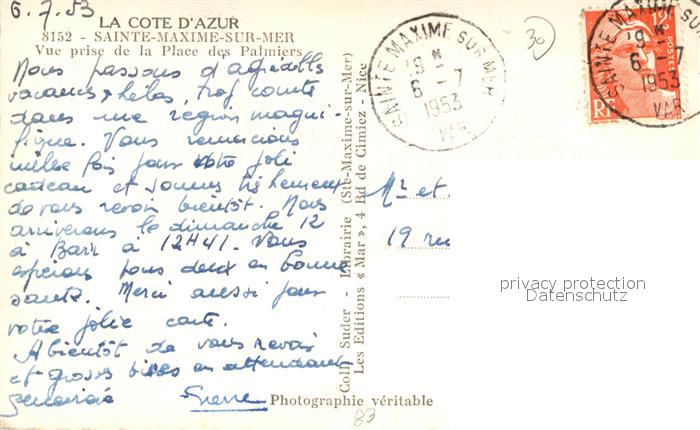 6.7.53
LA COTE D'AZUR
8152 - SAINTE-MAXIME-SUR-MER
Vue prise de la Place des Palmiers
Nous passons d'agréables
vacances, hélas, trop courte
dans une région magni-
fique. Vous remercions
mille fois pour votre joli
cadeau et sommes
de vous revoir bientôt. Nous
arriverons le dimanche 12
à Barr à 12H41. Vous
espérons tous deux en bonne
santé. Merci aussi pour
votre jolie carte.
A bientôt de vous revoir
et grosses bises en attendant
Pierre
Photographie véritable
Coll. Suder - Librairie (Ste-Maxime-sur-Mer)
Les Editions « Mar », 4 Bd de Cimiez - Nice
83
30
SAINTE MAXIME SUR MER
9 H
6 - 7
1953
VAR
12F
POSTES
RF
SAINTE MAXIME SUR MER
9 H
6 - 7
1953
VAR
Mr et
19 ru
privacy protection
Datenschutz